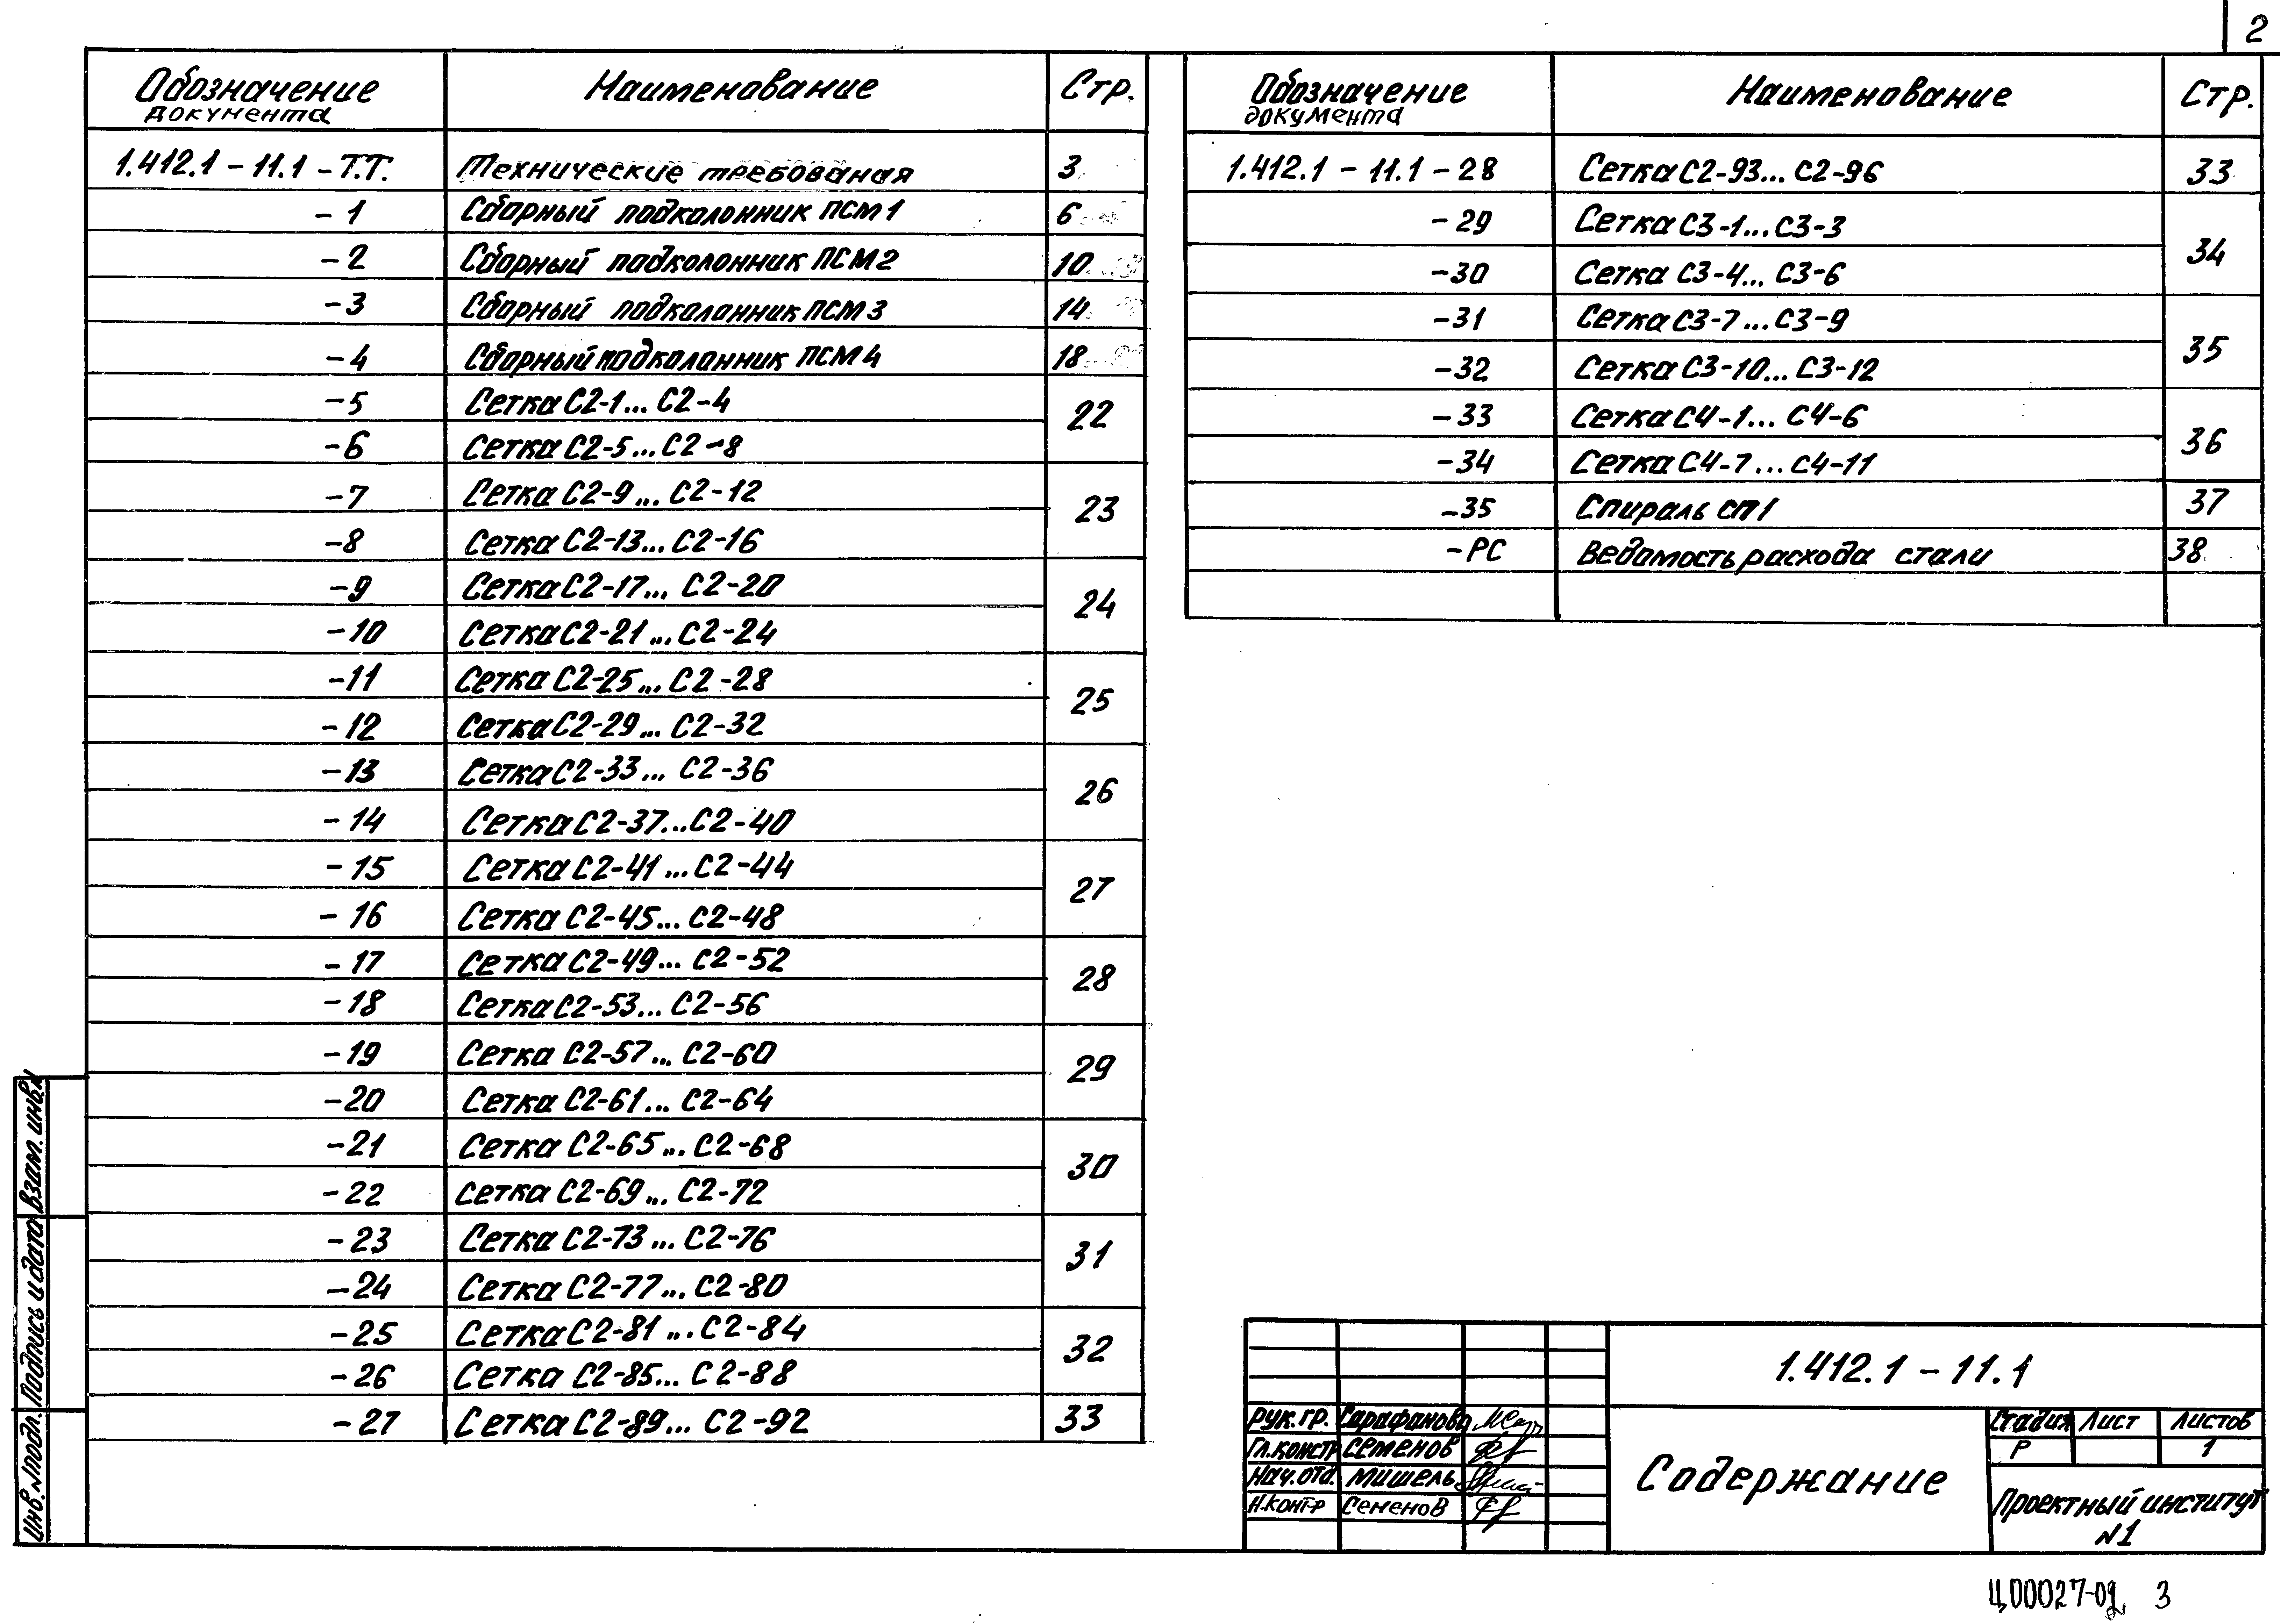 2
Обозначение документа Наименование Стр.
1.412.1 - 11.1 - Т.Т. Технические требования 3
- 1 Сборный подколонник ПСМ1 6
- 2 Сборный подколонник ПСМ2 10
- 3 Сборный подколонник ПСМ3 14
- 4 Сборный подколонник ПСМ4 18
- 5 Сетка С2-1... С2-4 22
- 6 Сетка С2-5... С2-8
- 7 Сетка С2-9... С2-12 23
- 8 Сетка С2-13... С2-16
- 9 Сетка С2-17... С2-20 24
- 10 Сетка С2-21... С2-24
- 11 Сетка С2-25... С2-28 25
- 12 Сетка С2-29... С2-32
- 13 Сетка С2-33... С2-36 26
- 14 Сетка С2-37... С2-40
- 15 Сетка С2-41... С2-44 27
- 16 Сетка С2-45... С2-48
- 17 Сетка С2-49... С2-52 28
- 18 Сетка С2-53... С2-56
- 19 Сетка С2-57... С2-60 29
- 20 Сетка С2-61... С2-64
- 21 Сетка С2-65... С2-68 30
- 22 Сетка С2-69... С2-72
- 23 Сетка С2-73... С2-76 31
- 24 Сетка С2-77... С2-80
- 25 Сетка С2-81... С2-84 32
- 26 Сетка С2-85... С2-88
- 27 Сетка С2-89... С2-92 33
Обозначение документа Наименование Стр.
1.412.1 - 11.1 - 28 Сетка С2-93... С2-96 33
- 29 Сетка С3-1... С3-3 34
- 30 Сетка С3-4... С3-6
- 31 Сетка С3-7... С3-9 35
- 32 Сетка С3-10... С3-12
- 33 Сетка С4-1... С4-6 36
- 34 Сетка С4-7... С4-11
- 35 Спираль СП1 37
- РС Ведомость расхода стали 38
Инв. № подл. Подпись и дата Взам. инв. №
1.412.1 - 11.1
Рук. гр. Сарафанова
Гл. констр Семенов
Нач. отд. Мишель
Н. контр Семенов
Содержание
Стадия Лист Листов
Р 1
Проектный институт
N1
Ц00027-02 3